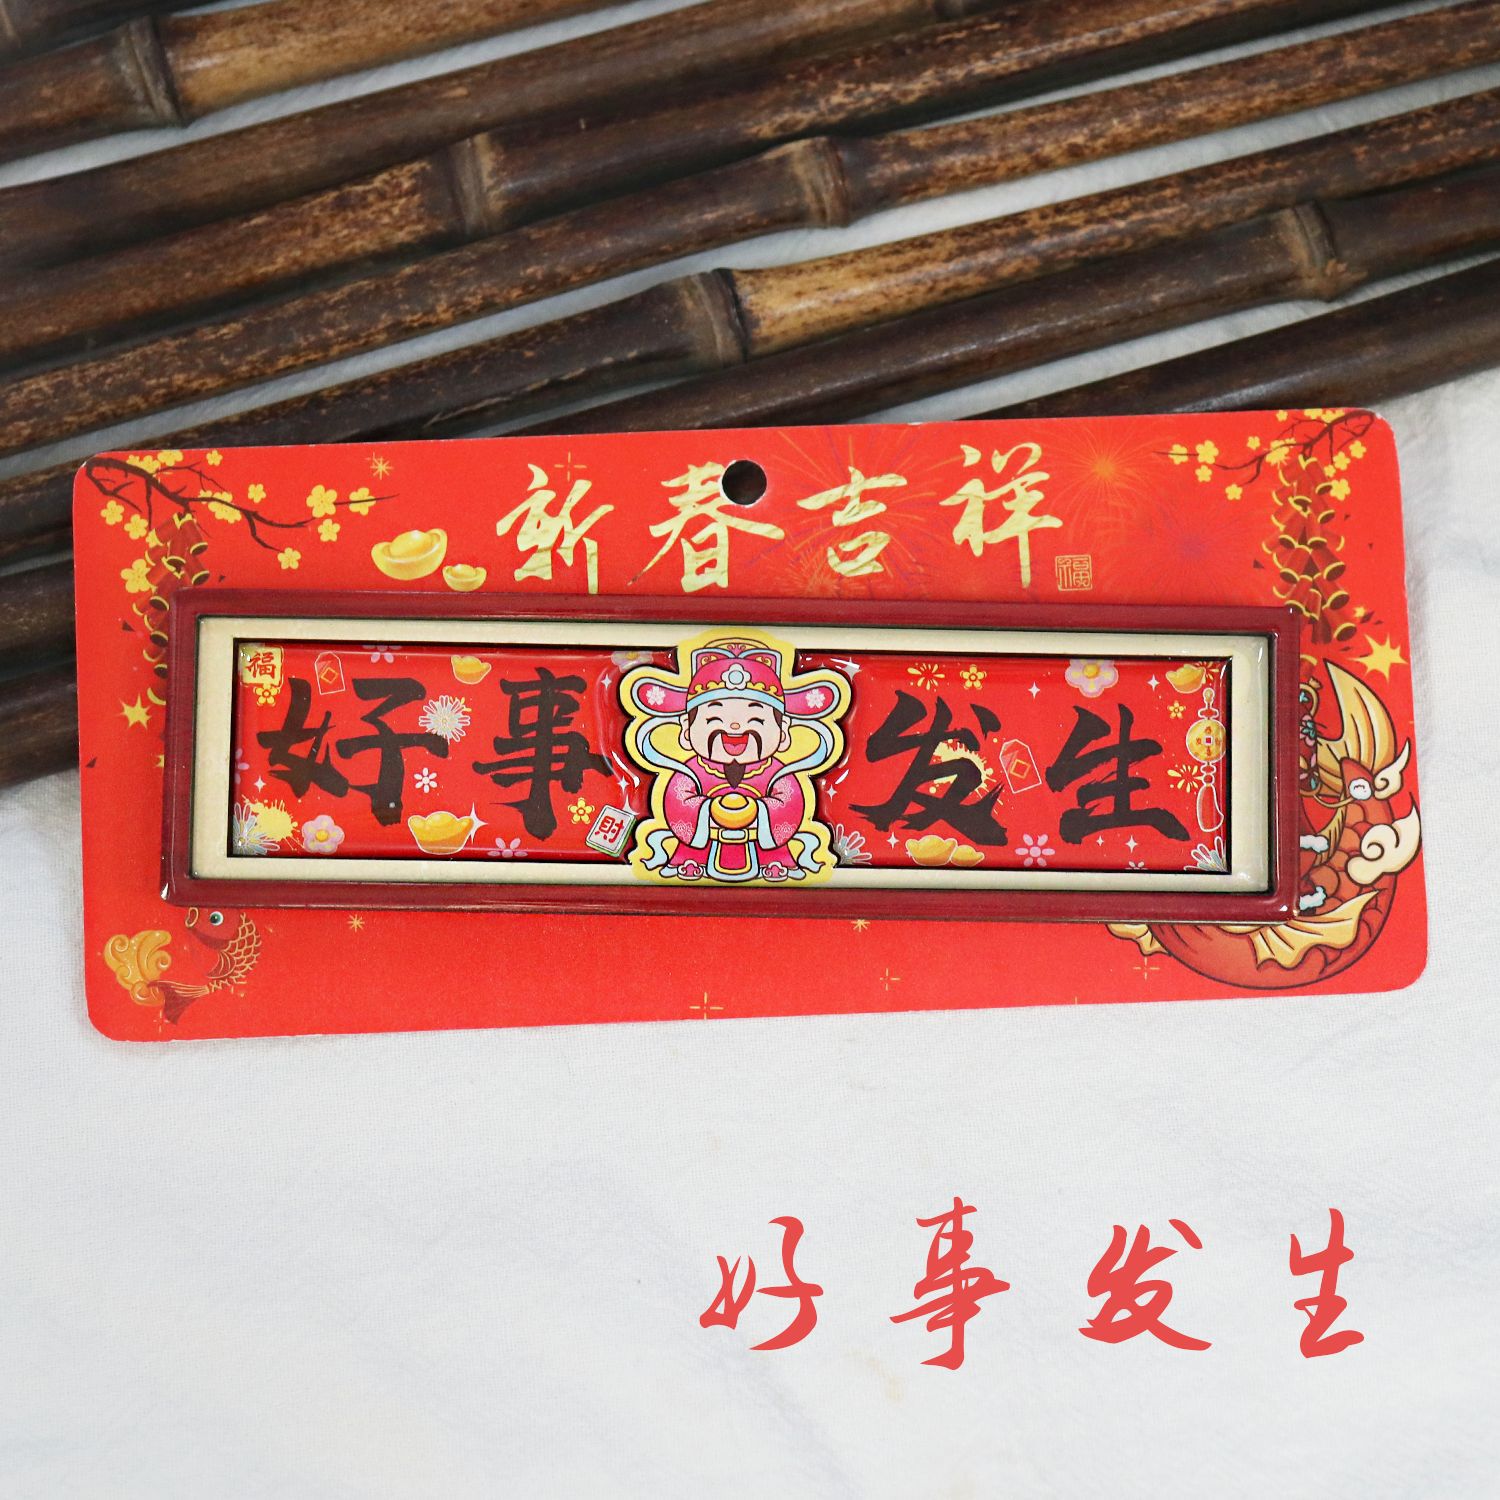 新春吉祥
福
福
好事发生
財
好事发生